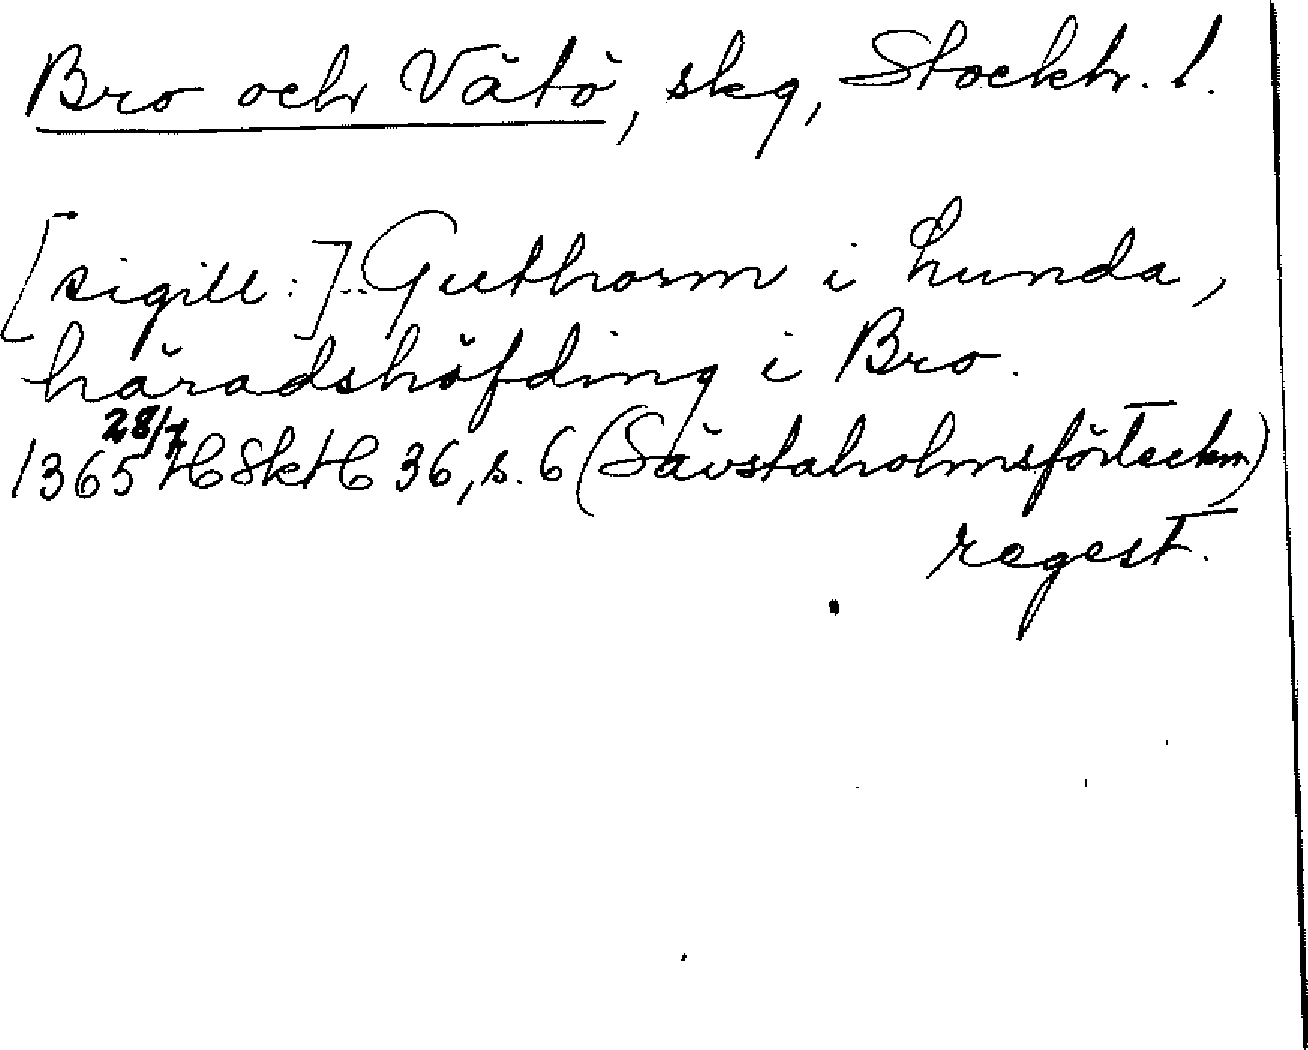 Bro och Vätö, skg, Stockh. l.
[sigill:]..Guthorm i Lunda,
häradshöfding i Bro.
1365 28/7 HSkH 36, s. 6 (Sävstaholmsförteckn)
regest.